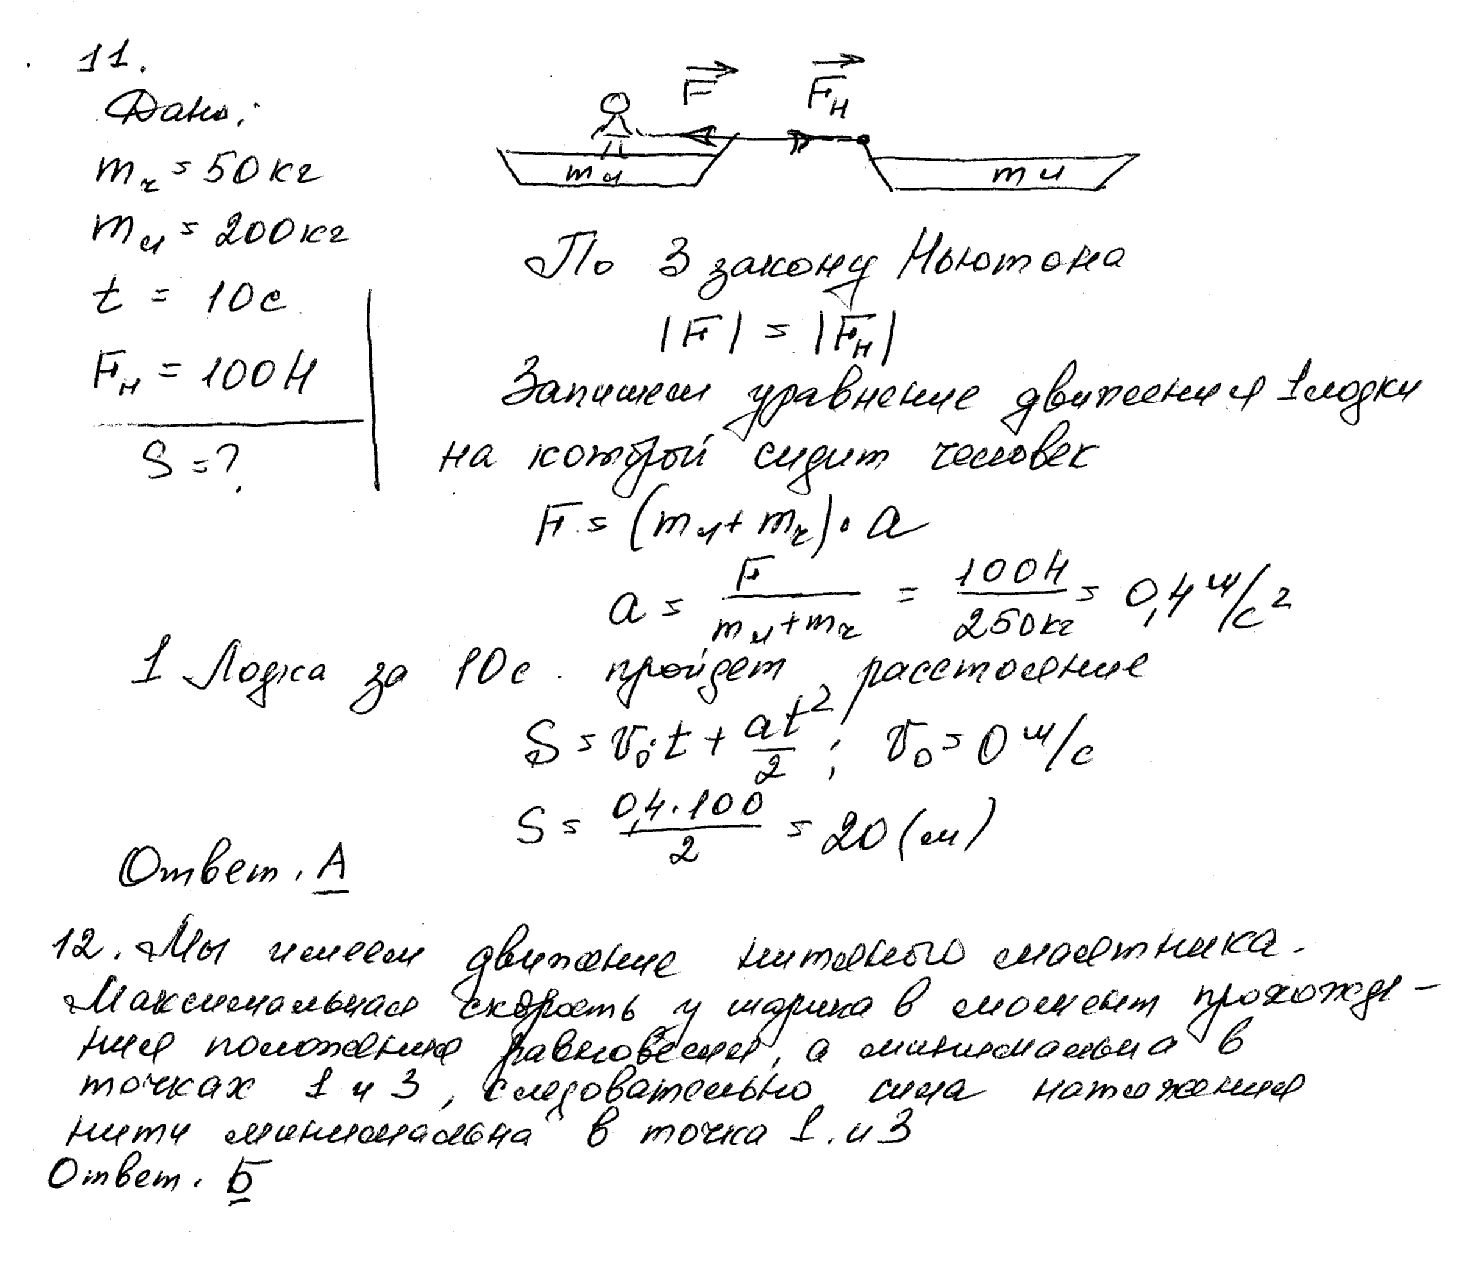 11.
Дано:
mч = 50кг
mл = 200кг
t = 10с
Fн = 100Н
S = ?
F Fн
mл mл
По 3 закону Ньютона
|F| = |Fн|
Запишем уравнение движения 1 лодки
на которой сидит человек
F = (mл + mч) · a
a = F/(mл + mч) = 100Н/250кг = 0,4 м/с²
1 Лодка за 10с. пройдет расстояние
S = v₀·t + at²/2 ; v₀ = 0 м/с
S = 0,4·100/2 = 20 (м)
Ответ. А
12. Мы имеем движение нитяного маятника.
Максимальная скорость у шарика в момент прохожде-
ния положения равновесия, а минимальна в
точках 1 и 3, следовательно сила натяжения
нити минимальна в точка 1 и 3
Ответ. Б